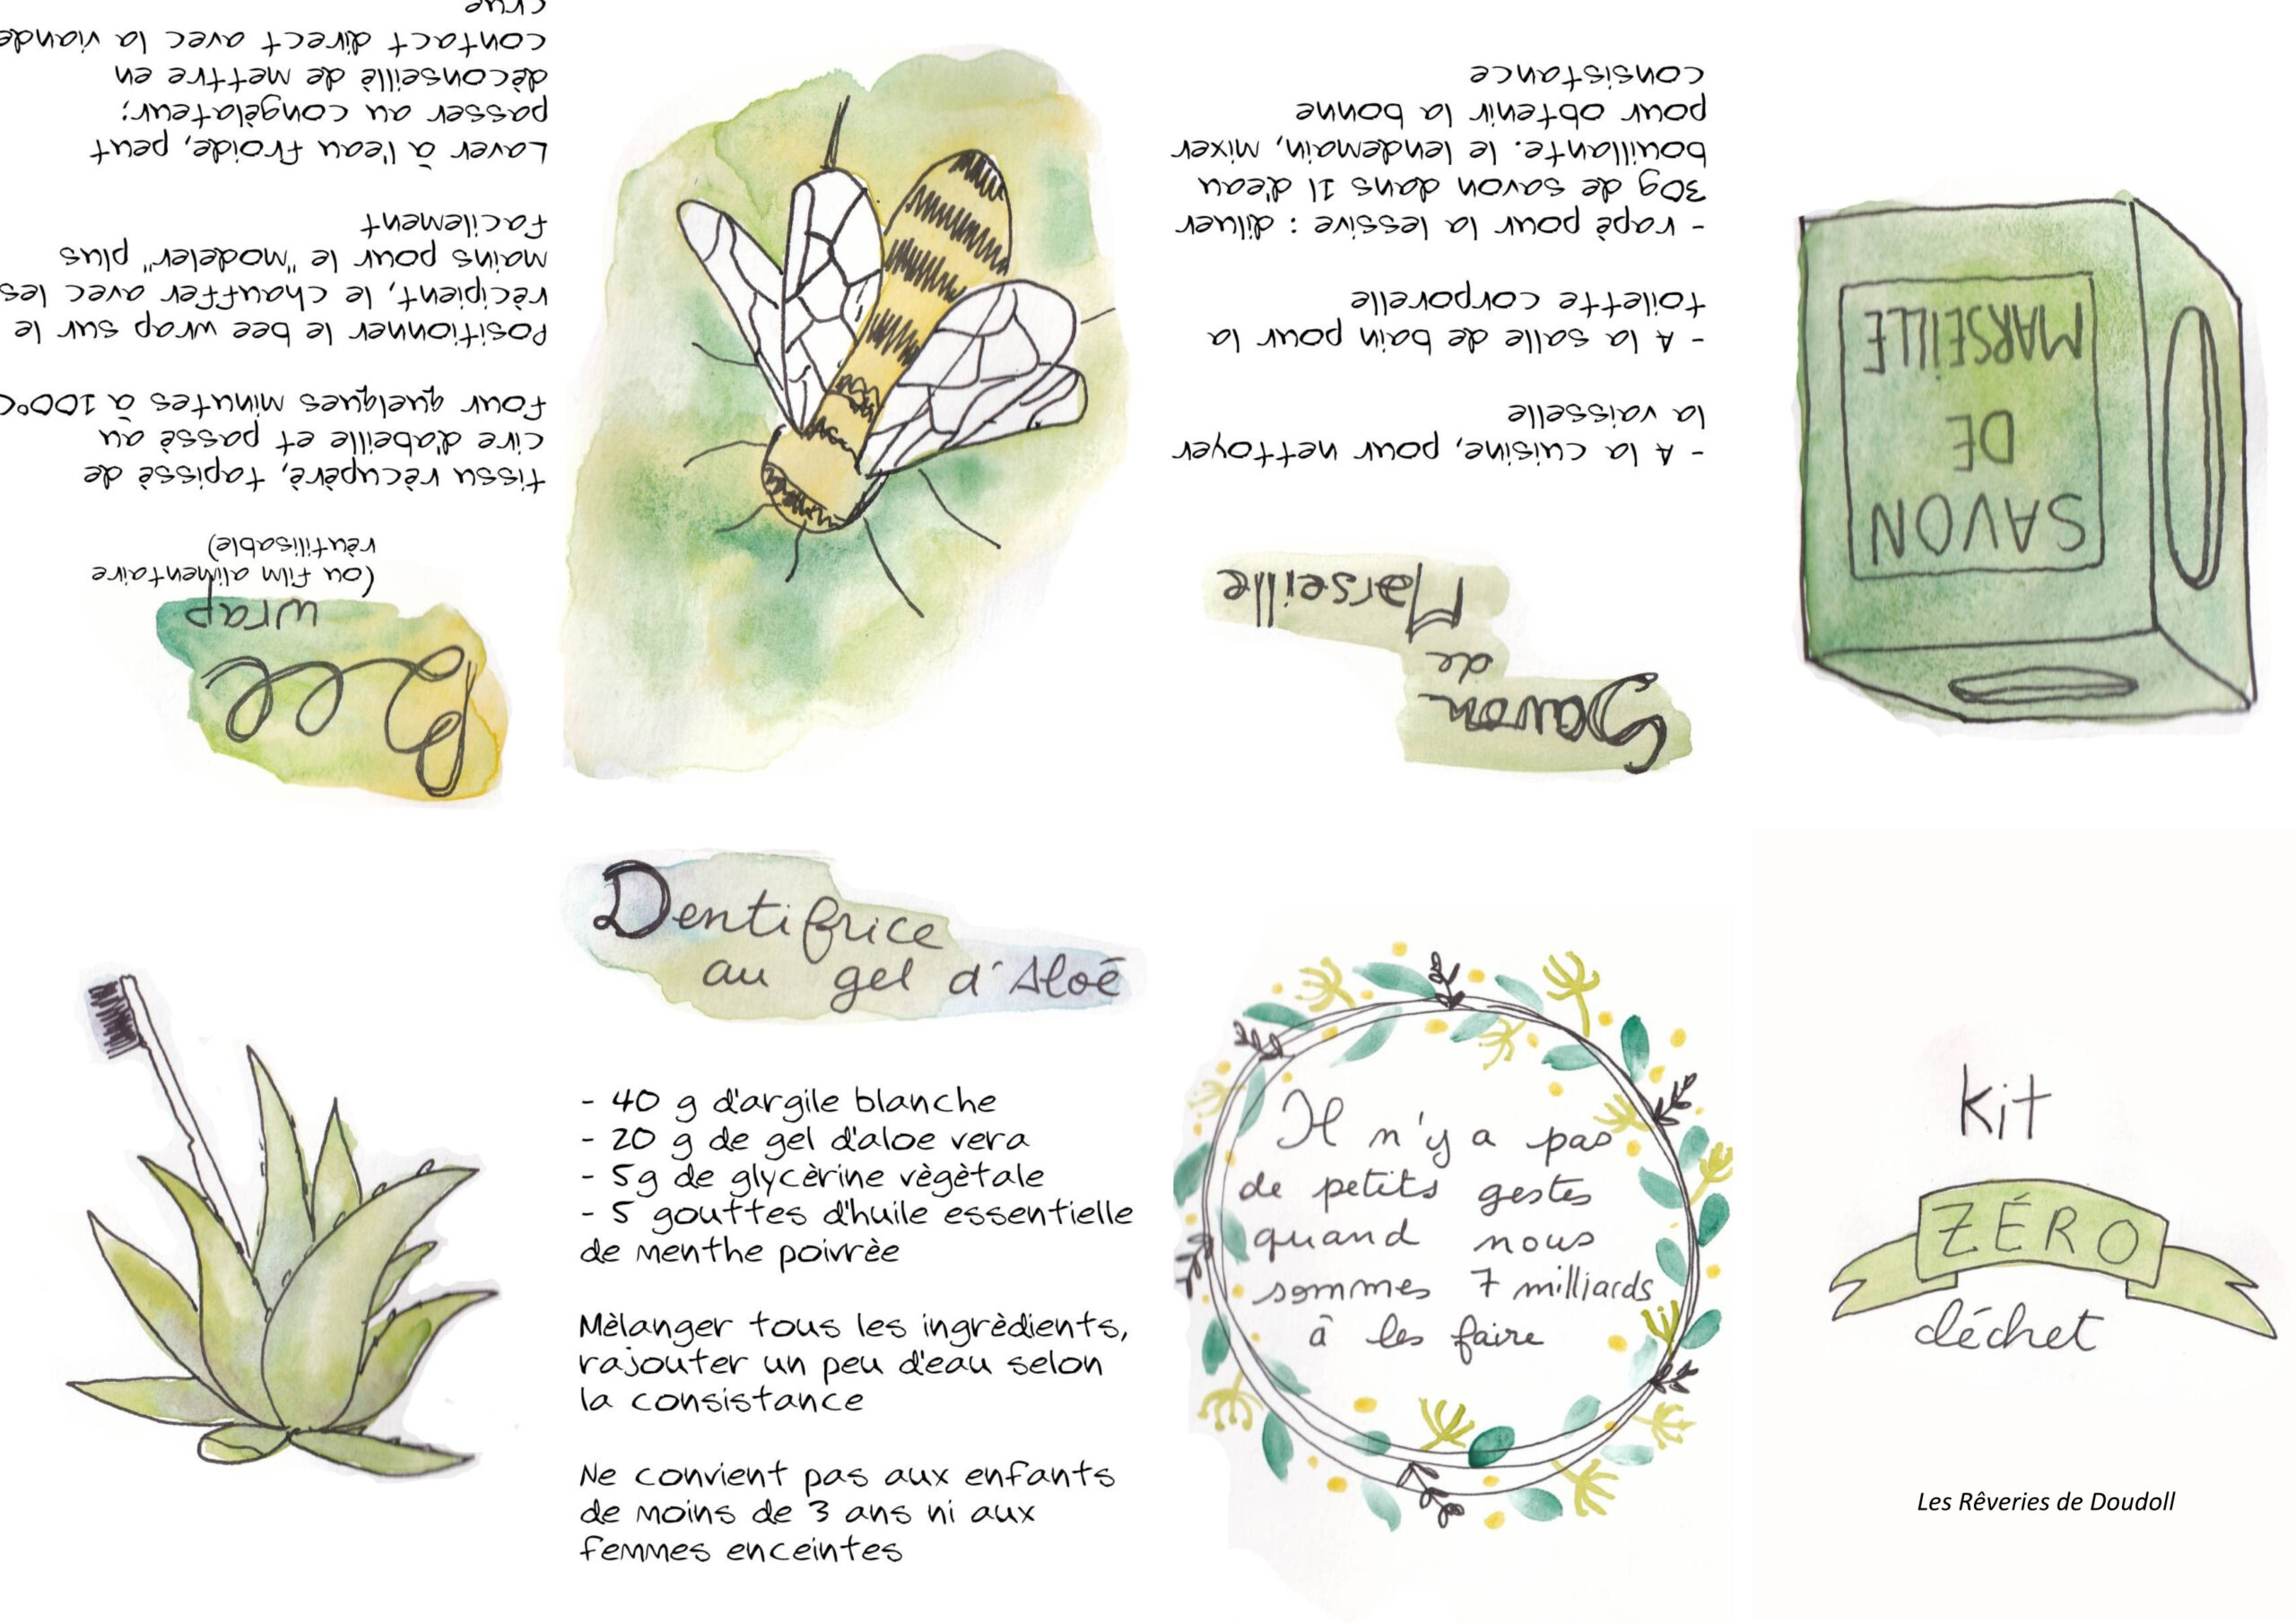 kit
ZÉRO
déchet
Les Rêveries de Doudoll
SAVON
DE
MARSEILLE
Savon
de
Marseille
- A la cuisine, pour nettoyer
la vaisselle
- A la salle de bain pour la
toilette corporelle
- rapè pour la lessive : diluer
30g de savon dans 1l d'eau
bouillante. le lendemain, mixer
pour obtenir la bonne
consistance
Bee
wrap
(ou film alimentaire
rèutilisable)
tissu rècupèrè, tapissè de
cire d'abeille et passè au
four quelques minutes à 100°C
Positionner le bee wrap sur le
rècipient, le chauffer avec les
mains pour le "modeler" plus
facilement
Laver à l'eau froide, peut
passer au congèlateur;
dèconseillè de mettre en
contact direct avec la viande
crue
Dentifrice
au gel d'Aloé
- 40 g d'argile blanche
- 20 g de gel d'aloe vera
- 5g de glycèrine vègètale
- 5 gouttes d'huile essentielle
de menthe poivrèe
Mèlanger tous les ingrèdients,
rajouter un peu d'eau selon
la consistance
Ne convient pas aux enfants
de moins de 3 ans ni aux
femmes enceintes
Il n'y a pas
de petits gestes
quand nous
sommes 7 milliards
à les faire